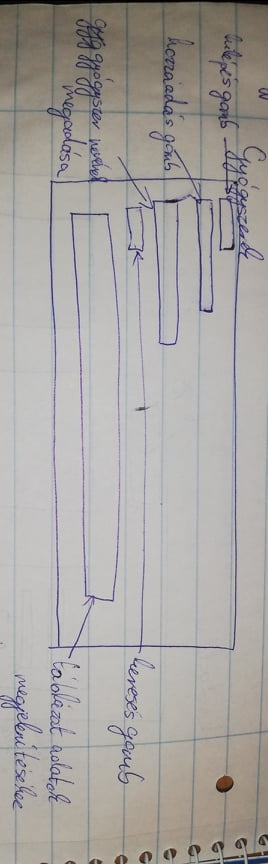 Gyógyszerek
kilépés gomb
hozzáadás gomb
gyógyszer nevének
megadása
keresés gomb
táblázat adatok
megjelenítéséhez